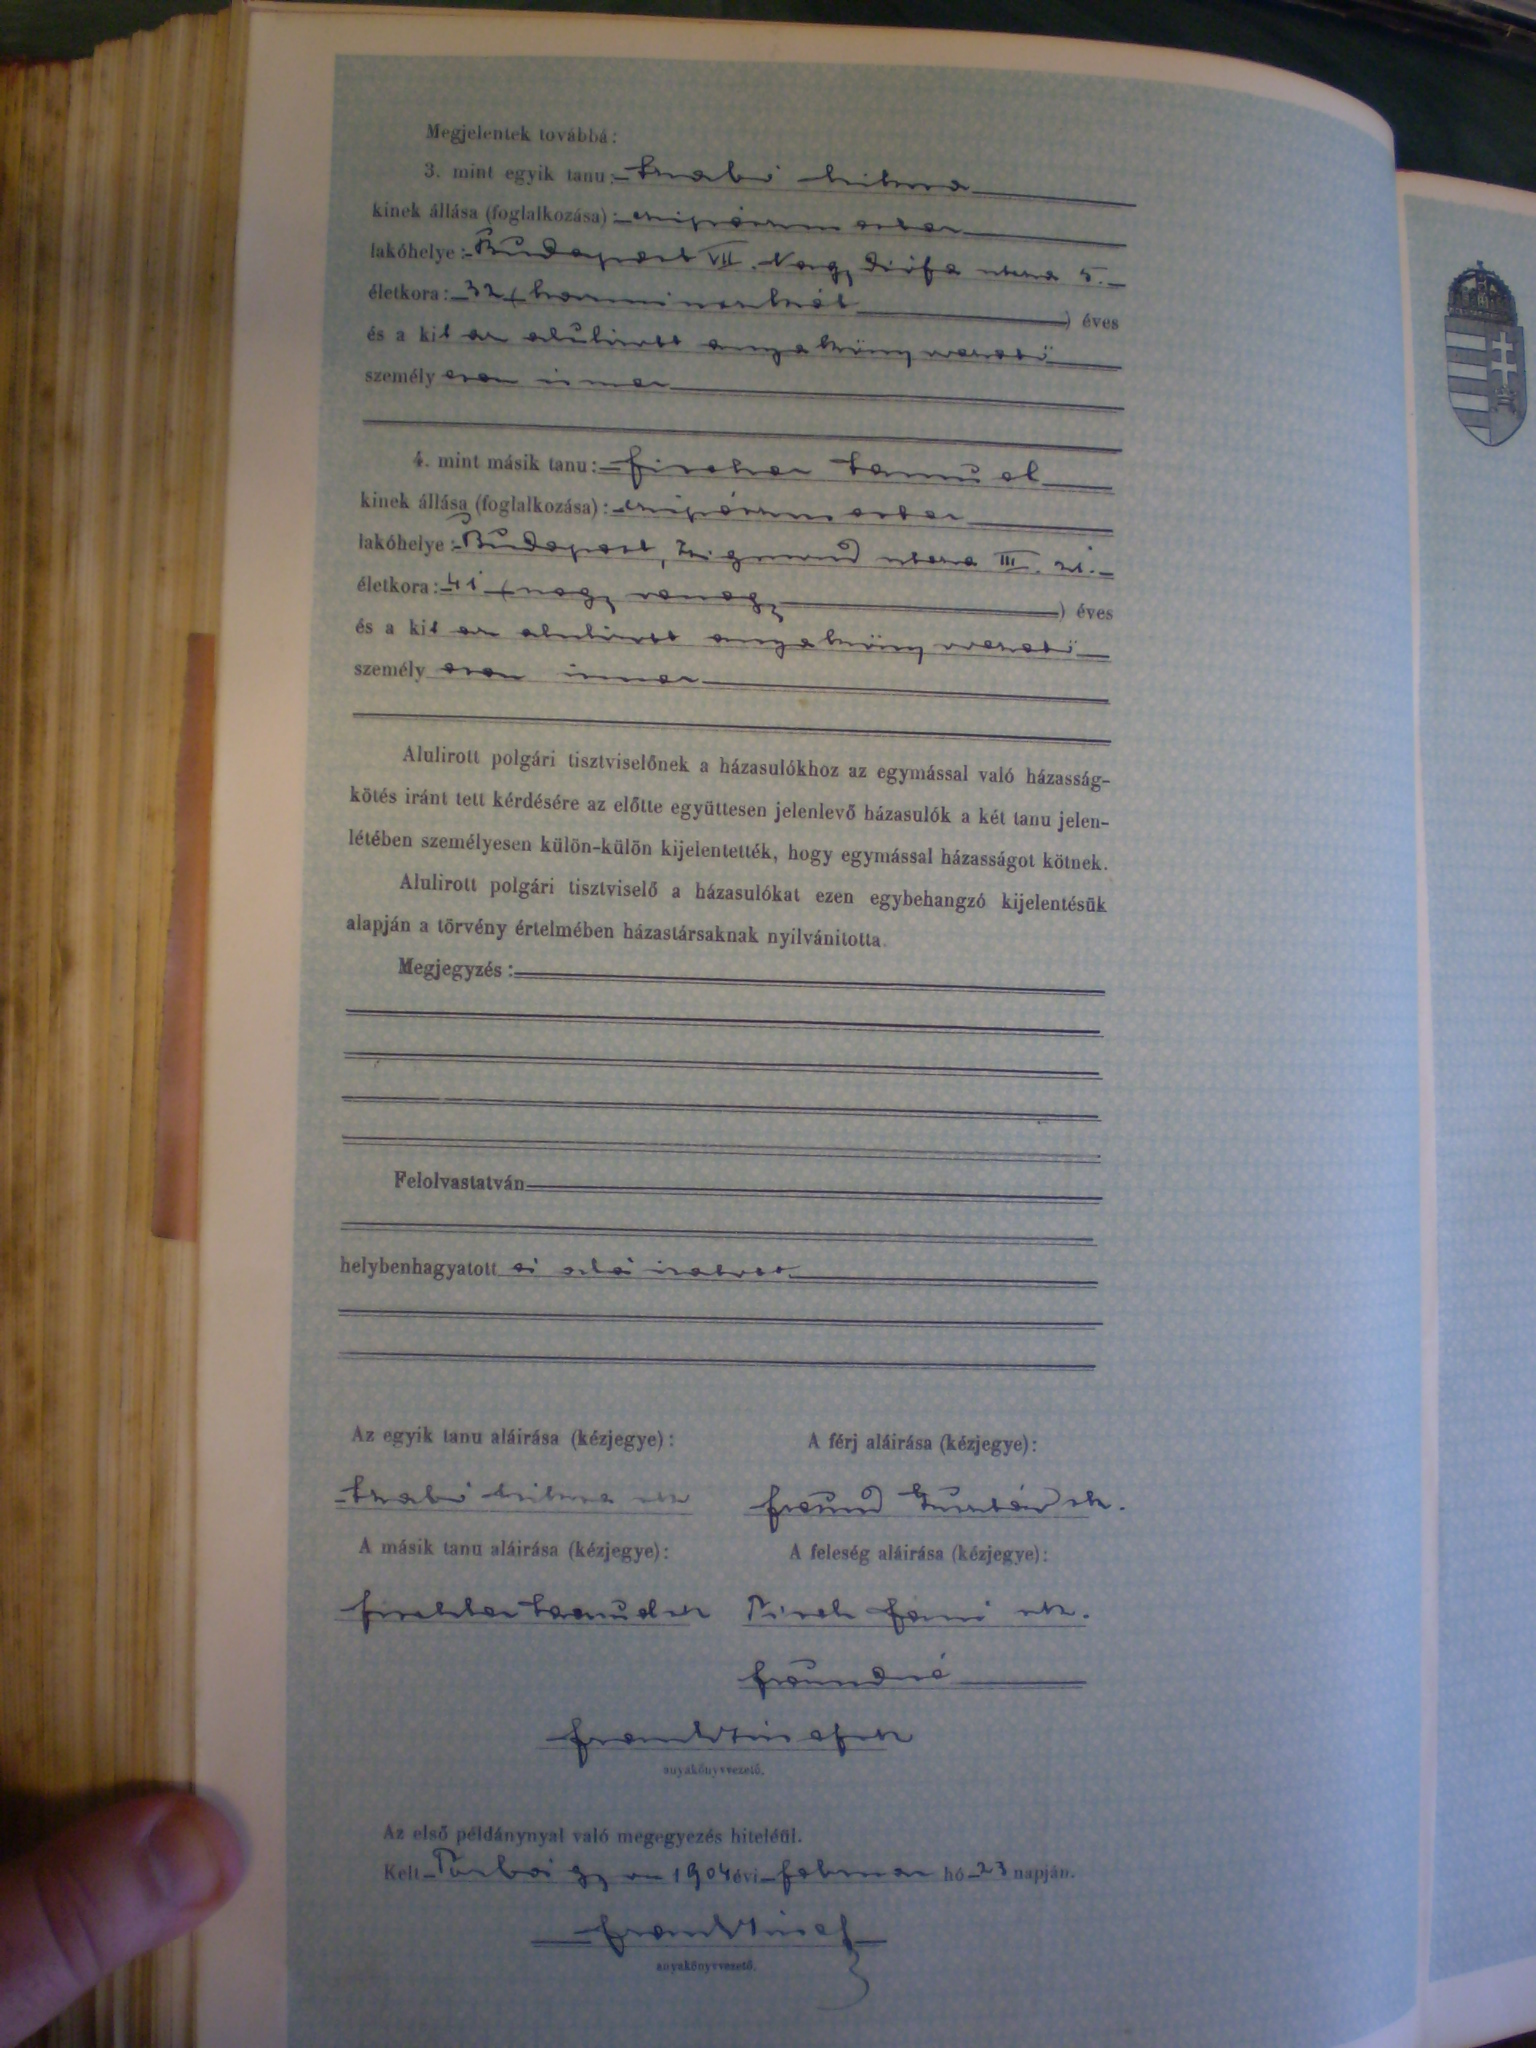 Megjelentek továbbá:
3. mint egyik tanu: Szabó
kinek állása (foglalkozása):
lakóhelye: Budapest VII. Nagy diófa utcza 5.
életkora: 32 (harminczkét) éves
és a kit az alulirott anyakönyvvezető
személyesen ismer
4. mint másik tanu: Fischer Samuel
kinek állása (foglalkozása):
lakóhelye: Budapest, Zsigmond utcza III.
életkora: 41 (negyvenegy) éves
és a kit az alulirott anyakönyvvezető
személyesen ismer
Alulirott polgári tisztviselőnek a házasulókhoz az egymással való házasság-
kötés iránt tett kérdésére az előtte együttesen jelenlevő házasulók a két tanu jelen-
létében személyesen külön-külön kijelentették, hogy egymással házasságot kötnek.
Alulirott polgári tisztviselő a házasulókat ezen egybehangzó kijelentésük
alapján a törvény értelmében házastársaknak nyilvánitotta.
Megjegyzés:
Felolvastatván
helybenhagyatott és aláiratott
Az egyik tanu aláirása (kézjegye): A férj aláirása (kézjegye):
Szabó Freund Gusztáv sk.
A másik tanu aláirása (kézjegye): A feleség aláirása (kézjegye):
Fischer Samuel sk Fani sk.
Freundné
anyakönyvvezető.
Az első példánynyal való megegyezés hiteléül.
Kelt 1904 évi február hó 23 napján.
anyakönyvvezető.